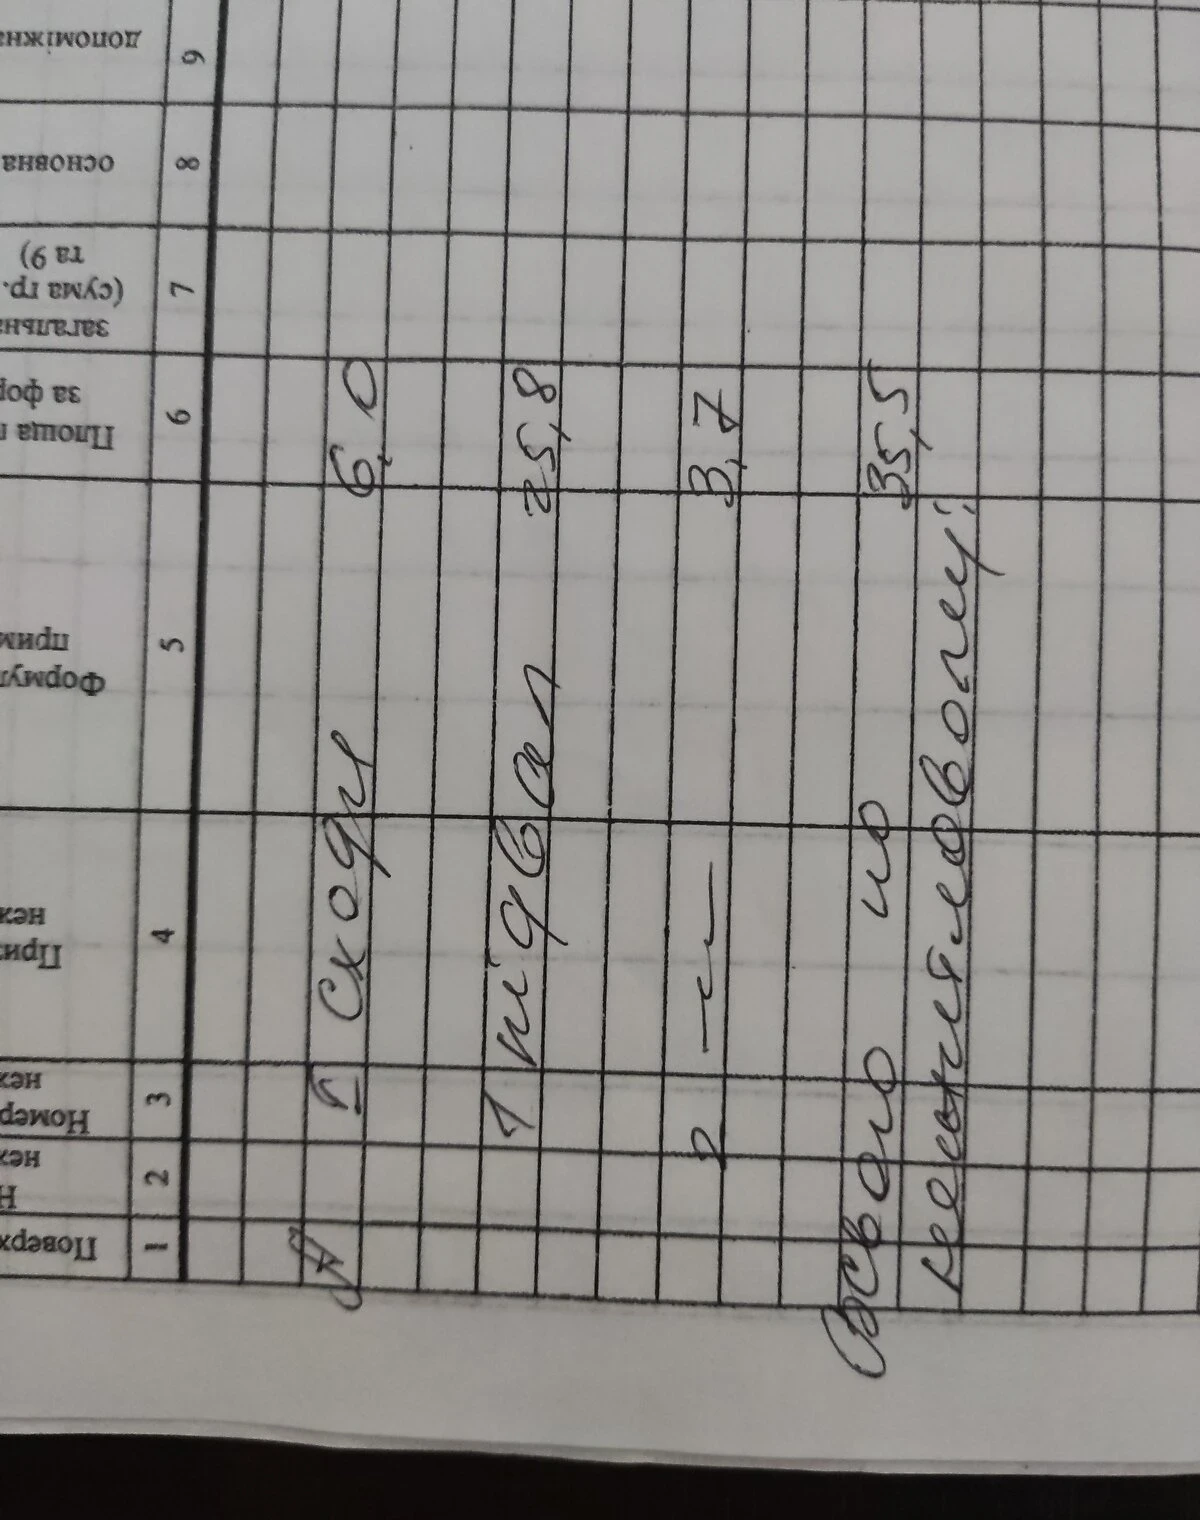 Поверх
Н
неж
Номер
неж
При
неж
Формул
прим
Площа п
за фор
загальна
(сума гр.
та 9)
основна
допоміжна
1 2 3 4 5 6 7 8 9
I Сходи 6,0
1 підвал 25,8
2 —〃— 3,7
Всього по 35,5